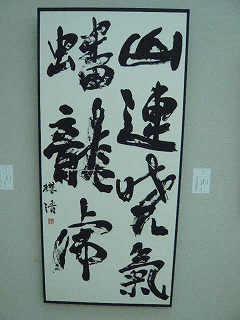 山連曉氣
蟠龍虎